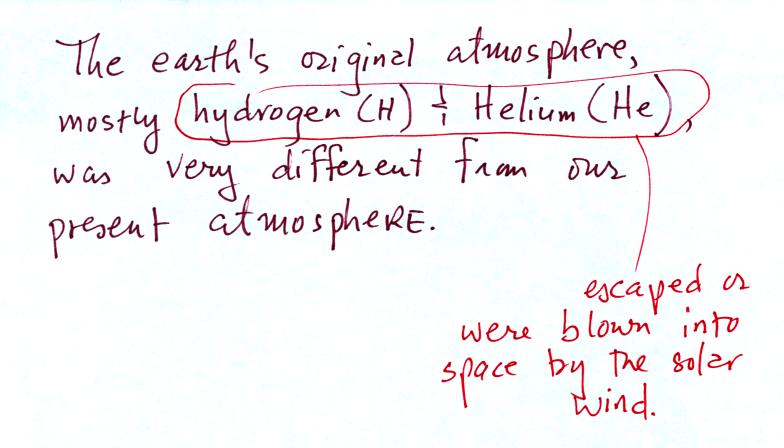 The earth's original atmosphere,
mostly hydrogen (H) & Helium (He),
was very different from our
present atmosphere.
escaped or
were blown into
space by the solar
wind.